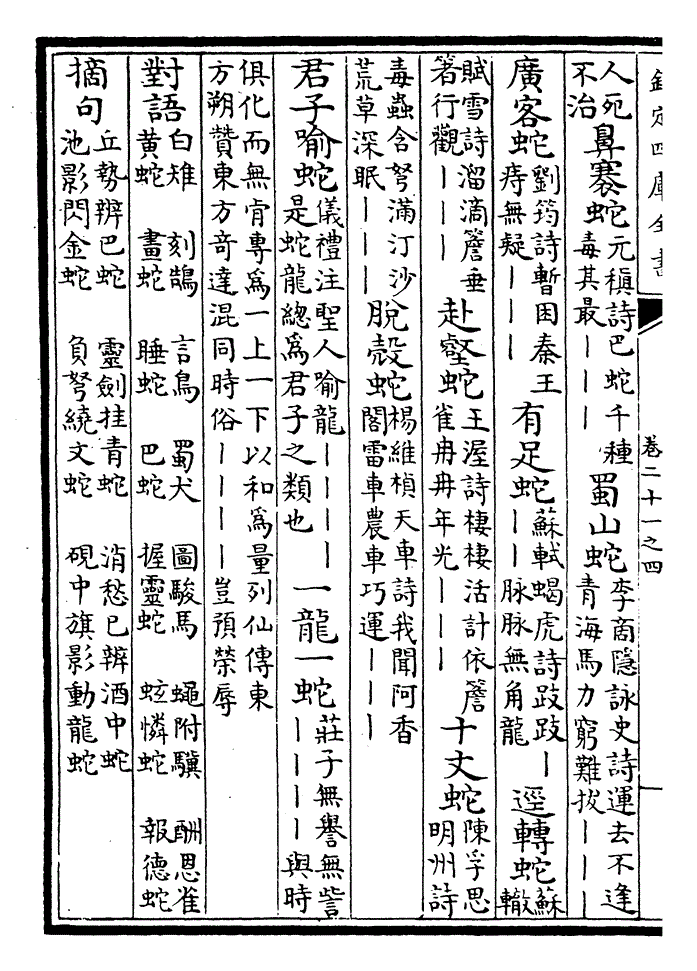 欽定四庫全書 卷二十一之四
人死不治 鼻褰蛇 元稹詩巴蛇千種毒其最｜｜｜ 蜀山蛇 李商隱詠史詩運去不逢青海馬力窮難拔｜｜｜
廣客蛇 劉筠詩暫困秦王痔無疑｜｜｜ 有足蛇 蘇軾蝎虎詩跂跂｜｜｜脉脉無角龍 逕轉蛇 蘇轍
賦雪詩溜滴簷垂箸行觀｜｜｜ 赴壑蛇 王渥詩棲棲活計依簷雀冉冉年光｜｜｜ 十丈蛇 陳孚思明州詩
毒蟲含弩滿汀沙荒草深眠｜｜｜ 脫殼蛇 楊維楨天車詩我聞阿香閣雷車農車巧運｜｜｜
君子喻蛇 儀禮注聖人喻龍｜｜｜｜是蛇龍總爲君子之類也 一龍一蛇 莊子無譽無訾｜｜｜｜與時
俱化而無肯專爲一上一下以和爲量列仙傳東方朔贊東方奇達混同時俗｜｜｜｜豈預榮辱
對語 白雉 黃蛇 刻鵠 畫蛇 言鳥 睡蛇 蜀犬 巴蛇 圖駿馬 握靈蛇 蠅附驥 蚿憐蛇 酬恩雀 報德蛇
摘句 丘勢辨巴蛇 池影閃金蛇 靈劍挂青蛇 負弩繞文蛇 消愁已辨酒中蛇 硯中旗影動龍蛇